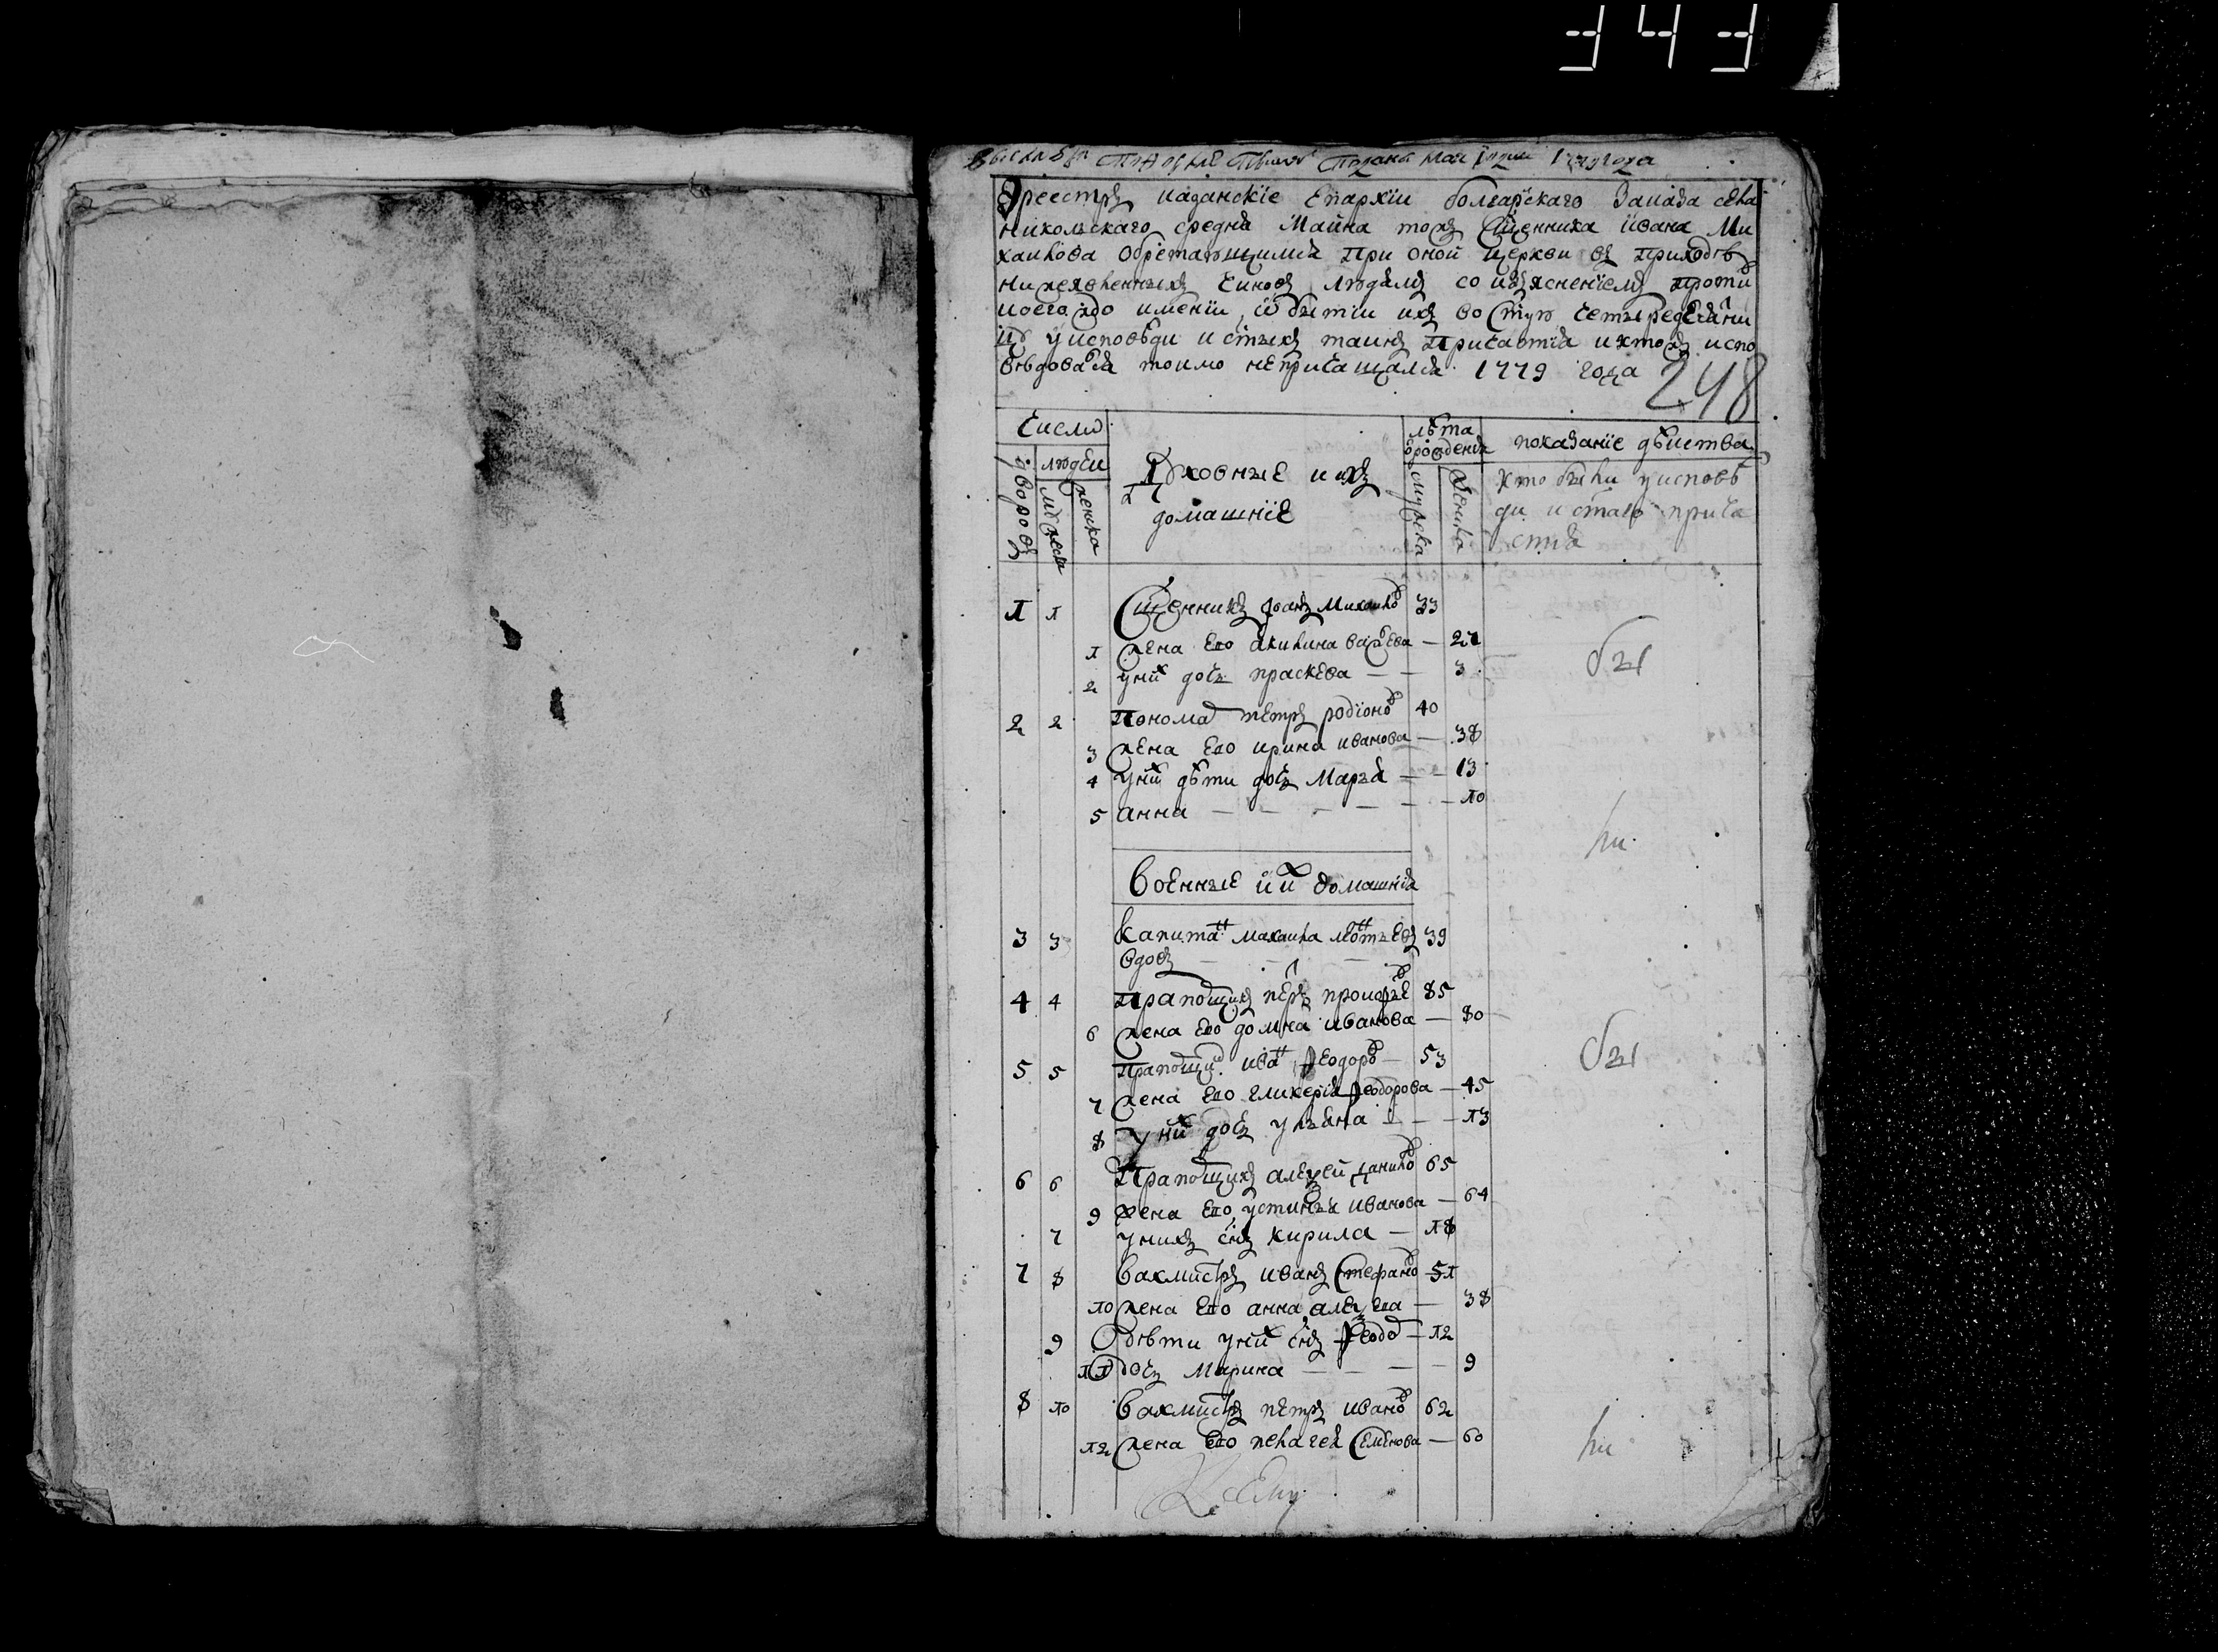 343
подана мая 1779 года
Реестръ казанскїе Епархїи болгарскаго Заказа села
Никольскаго средня Майна тожъ Сщенника Ивана Ми
хаилова обретающимся При оной церкви въ приходѣ
нижеявленныхъ чиновъ людямъ со изъясненїемъ проти
коегождо имени, о бытии ихъ во стую четыредесятни
цу у исповѣди и стыхъ таинъ Причастїя и ктожъ испо
вѣдовался токмо непричащался 1779 года 248
Число
дворовъ
людей
мужеска
женска
Духовные и ихъ
домашнїе
лѣта
ѿ рожденїя
мужеска
женска
показанїе дѣйства
кто были у исповѣ
ди и стаго прича
стїя
1 1 Сщенникъ Iоаннъ Михаило 33
1 жена Его Акилина Василева — 27
2 у них дочь праскева — — 3
бы
2 2 Понома петръ родїоно 40
3 жена Его ирина иванова — 38
4 у них дѣти дочь Марья — — 13
5 анна — — — — — 10
ли
Военные и их домашнїя
3 3 Капитан Михаила Леонтьевъ 39
вдовъ — — —
4 4 Прапощикъ петръ прокофье 85
6 жена Его домна иванова — 80
5 5 Прапощик иван Феодоро — 53
бы
7 жена Его гликерїя Феодорова — 45
8 у них дочь ульяна — — 13
6 6 Прапощикъ алеѯей данило 65
9 жена Его устинья иванова — 64
7 у нихъ снъ кирила — 18
7 8 Вахмистръ иванъ Стефано 51
10 жена Его анна алеѯеева — 38
9 дѣти у них снъ Феодо — 12
11 дочь Марина — — — 9
8 10 Вахмистръ петръ ивано 62
12 жена Его пелагея Семенова — 60
ли